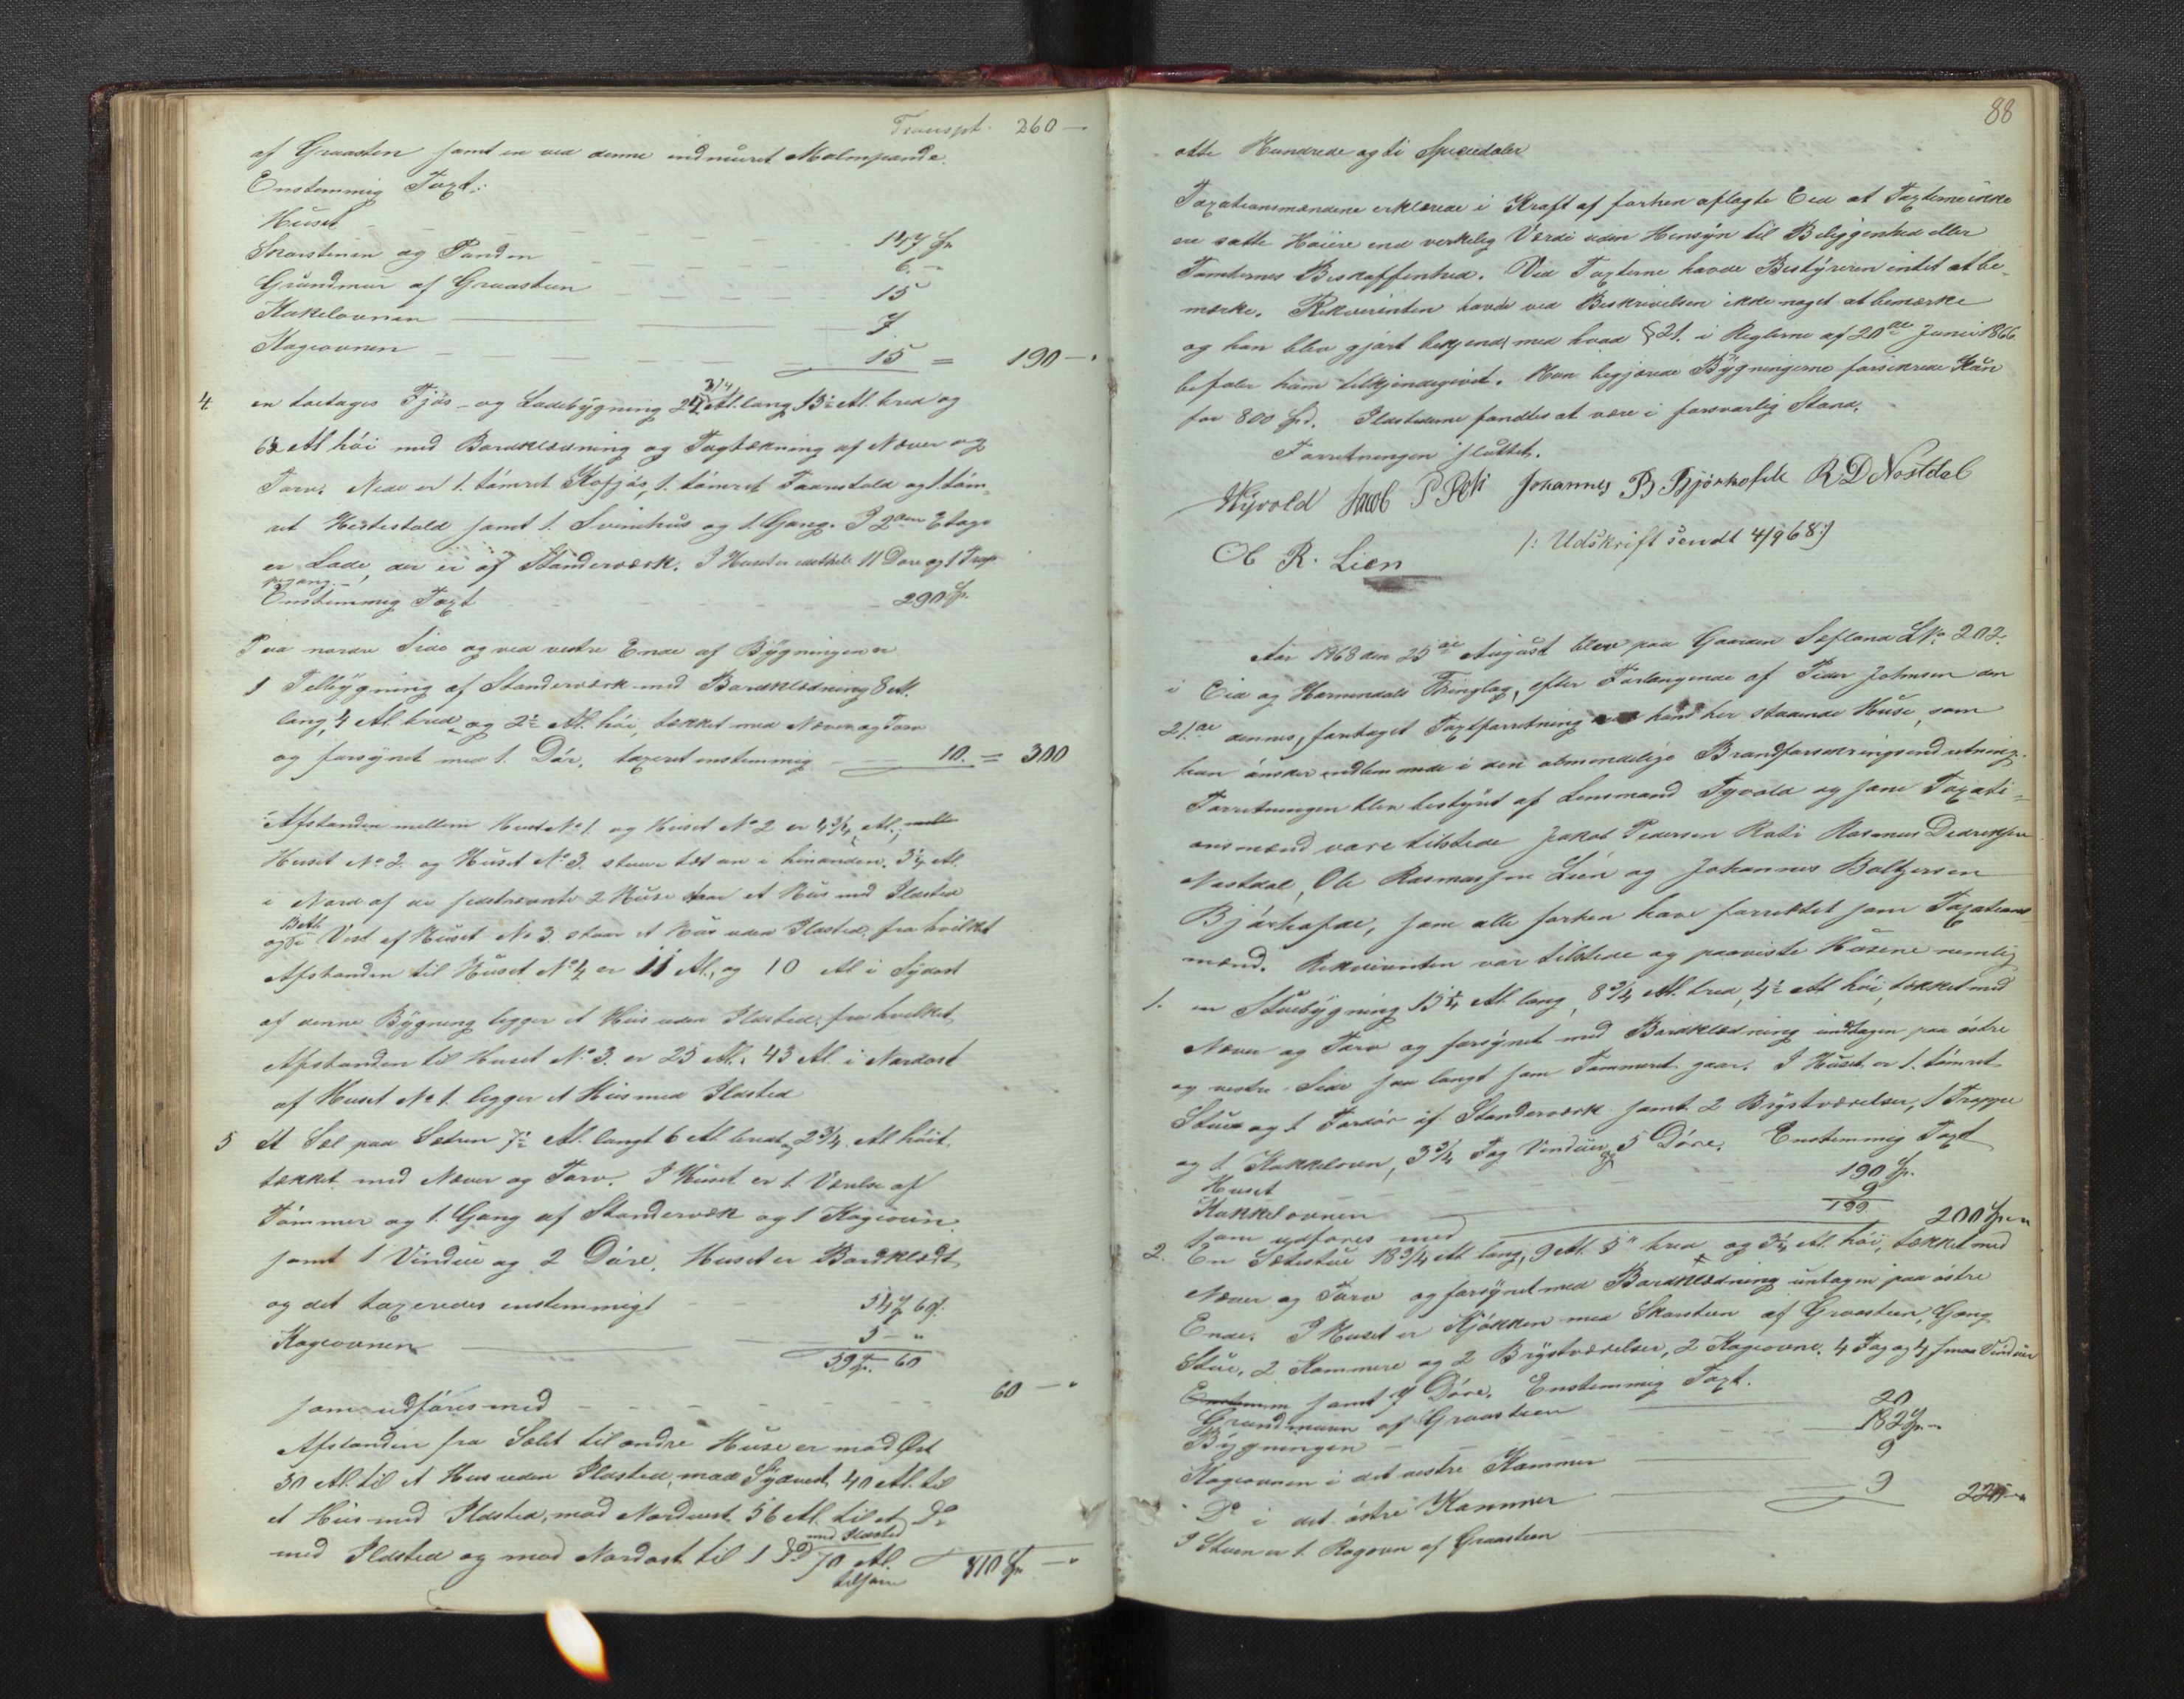 Transpt. 260 —
af Graasten samt en ved denne indmuret Malmpande.
Enstemmig Taxt:
Huset 147 Sp.
Skorstenen og Panden 6. "
Grundmur af Graasteen 15
Kakelovnen 7
Kageovnen 15 = 190 — "
4. en toetages Fjøs- og Ladebygning 24 3/4 Al. lang 13½ Al. bred og
6½ Al høi med Bordklædning og Tagtækning af Næver og
Torv. Nede er 1. tømret Kofjøs, 1. tømret Faarestald og 1 tøm-
ret Hestestald samt 1. Svinehus og 1. Gang. I 2den Etage
er Lade, der er af Standerværk. I Huset er idethele 11 Døre og 1 Trap-
pegang.
Enstemmig Taxt 290 Sp.
Paa nordre Side og ved vestre Ende af Bygningen er
1 Tilbygning af Standerværk med Bordklædning 8 Al.
lang, 4 Al. bred og 2½ Al. høi, tækket med Næver og Torv
og forsynet med 1. Dør, taxeret enstemmig 10. = 300
Afstanden mellem Huset No 1. og Huset No 2 er 4 3/4 Al.; mellem
Huset No 2. og Huset No 3. staar tæt an i hinanden. 3½ Al.
i Nord af de sidstnævnte 2 Huse staar et Hus med Ildsted
og 13 Al. i Vest af Huset No 3. staar et Hus uden Ildsted, fra hvilket
Afstanden til Huset No 4 er 11 Al., og 10 Al. i Sydost
af denne Bygning ligger et Hus uden Ildsted, fra hvilket
Afstanden til Huset No 3. er 25 Al. 43 Al. i Nordost
af Huset No 1. ligger et Hus med Ildsted
5 Et Sel paa Sætren 7½ Al. langt 6 Al. bredt, 2 3/4 Al høit,
tækket med Næver og Torv. I Huset er 1. Værelse af
Tømmer og 1. Gang af Standerværk og 1 Kageovn
samt 1 Vindue og 2 Døre. Huset er Bordklædt
og det taxeredes enstemmigt 54 Sp 60 s.
Kageovnen 5 — "
59 Sp. 60
som udføres med 60 — "
Afstanden fra Selet til andre Huse er mod Øst
30 Al. til et Hus uden Ildsted, mod Sydvest 40 Al. til
et Hus med Ildsted, mod Nordvest 56 Al. til et Do
med Ildsted og mod Nordost til 1 Do med Ildsted 70 Al. 810 Sp. — "
tilsam
88
otte Hundrede og ti Speciedaler
Taxationsmændene erklærede i Kraft af forhen aflagte Eed at Taxterne ikke
ere satte Høiere end verkelig Værdi uden Hensyn til Beliggenhed eller
Tomternes Beskaffenhed. Ved Taxterne havde Bestyreren intet at be-
mærke. Rekvirenten havde ved Beskrivelsen ikke noget at bemærke
og han blev gjort bekjendt med hvad § 21. i Reglerne af 20de Juni 1866
befaler ham tilkjendegivet. Han begjærede Bygningerne forsikrede Kun
for 800 Spd. Ildstederne fandtes at være i forsvarlig Stand.
Forretningen sluttet.
Jacob P Roti Johannes B Bjørhofde R D Nøstdal
Ole R. Lien /: Udskrift sendt 4/9 68 :/
Aar 1868 den 25de August blev paa Gaarden Sefland LNo 202.
i Eid og Hornindals Thinglag, efter Forlangende af Peder Johnsen den
21de dennes, foretaget Taxtforretning hans her staaende Huse, som
han ønsker indlemmede i den almindelige Brandforsikringsindretning.
Forretningen blev bestyret af Lensmand Tyvold og som Taxati-
onsmænd vare tilstede Jakob Pedersen Roti Rasmus Dedriksen
Nøstdal, Ole Rasmussen Lien og Johannes Baltzersen
Bjørhofde, som alle forhen have forrettet som Taxations-
mænd. Rekvirenten var tilstede og paaviste Husene nemlig
1. en Stuebygning 13 1/4 Al. lang, 8 3/4 Al. bred, 4½ Al. høi, tækket med
Næver og Torv og forsynet med Bordklædning undtagen paa østre
og vestre Side saa langt som Tømmeret gaar. I Huset er 1. tømret
Stue og 1 Fordør af Standerværk samt 2 Brystværelser, 1 Trappe
og 1. Kakkelovn, 3 3/4 Fag Vinduer og 5 Døre. Enstemmig Taxt
Huset 190 Sp.
Kakkelovnen 9
199.
som udføres med 200 Sp "
2. En Sætestue 18 3/4 Al. lang, 9 Al. 5" bred og 3½ Al. høi, tækket med
Næver og Torv og forsynet med Bordklædning untagen paa østre
Ende. I Huset er Kjøkken med Skorsteen af Graasteen, Gang
Stue, 2 Kammere og 2 Brystværelser, 2 Kageovne, 4 Fag og 4 smaa Vinduer
Enstemm samt 7 Døre. Enstemmig Taxt.
Grundmuren af Graasteen 20
Bygningen 182 Sp. "
Kageovnen i det vestre Kammer 9
" Do i det østre Kammer 9 220 — "
I Stuen er 1. Rogovn af Graasteen